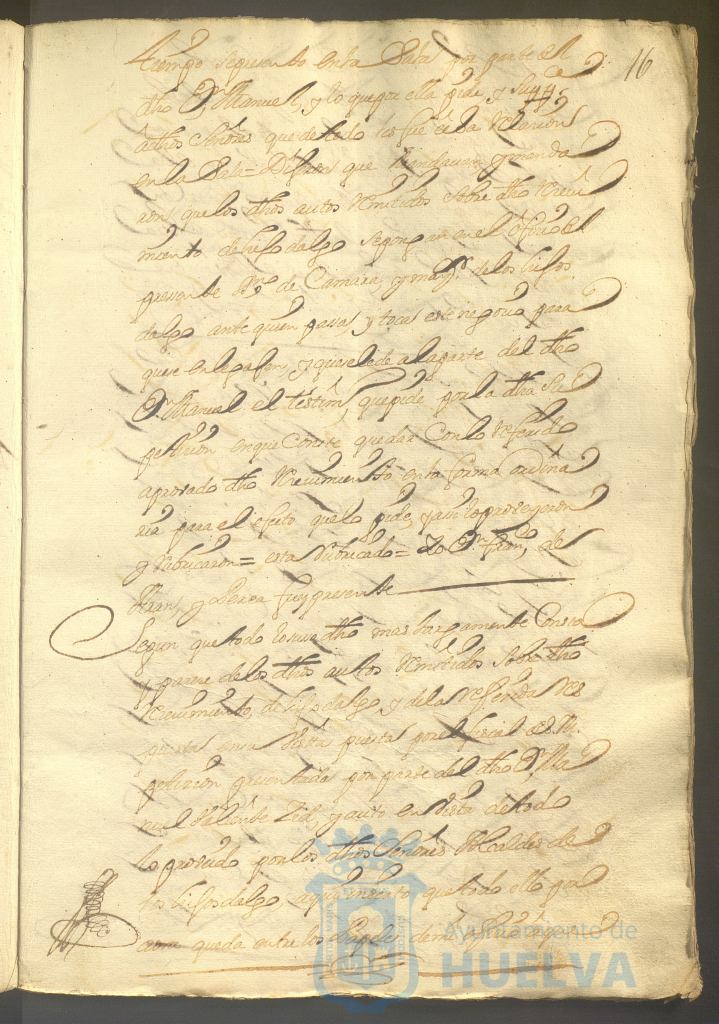 16
tiempo se presento en la Sala por parte del
dho Dn Manuel, y lo que por ella pide, y
a dhos Señores que de todo les fue fecha relacion
en la Sala = Dixeron que mandavan y mandaron
que los dhos autos remitidos sobre dho recivi
miento de hijo dalgo se pongan en el oficio del
presente Sno de Camara, y mayor de los hijos
dalgo ante quien passa y toca este negocio para
que se en le pasen, y que se le de a la parte del dho
Dn Manuel el testimo que pide por la dha su
peticion en que Conste quedar Con lo referido
aprovado dho recivimiento en la forma ordina
ria para el efecto que lo pide, y assi lo proveyeron
y rubricaron = esta rubricado = Yo Dn Franco de
y fuy presente
Segun que todo lo suso dho mas largamente Consta
y parece de los dhos autos remitidos sobre dho
recivimiento de hijo dalgo, y de la referida res
puesta en su vista puesta por el fiscal de S.M.
peticion presentada por parte del dho Dn Ma
nuel y auto en vista de todo
lo proveido por los dhos Señores Alcaldes de
los hijos dalgo, a que me remito que todo ello por
aora queda entre los papeles de mi
Ayuntamiento de
HUELVA